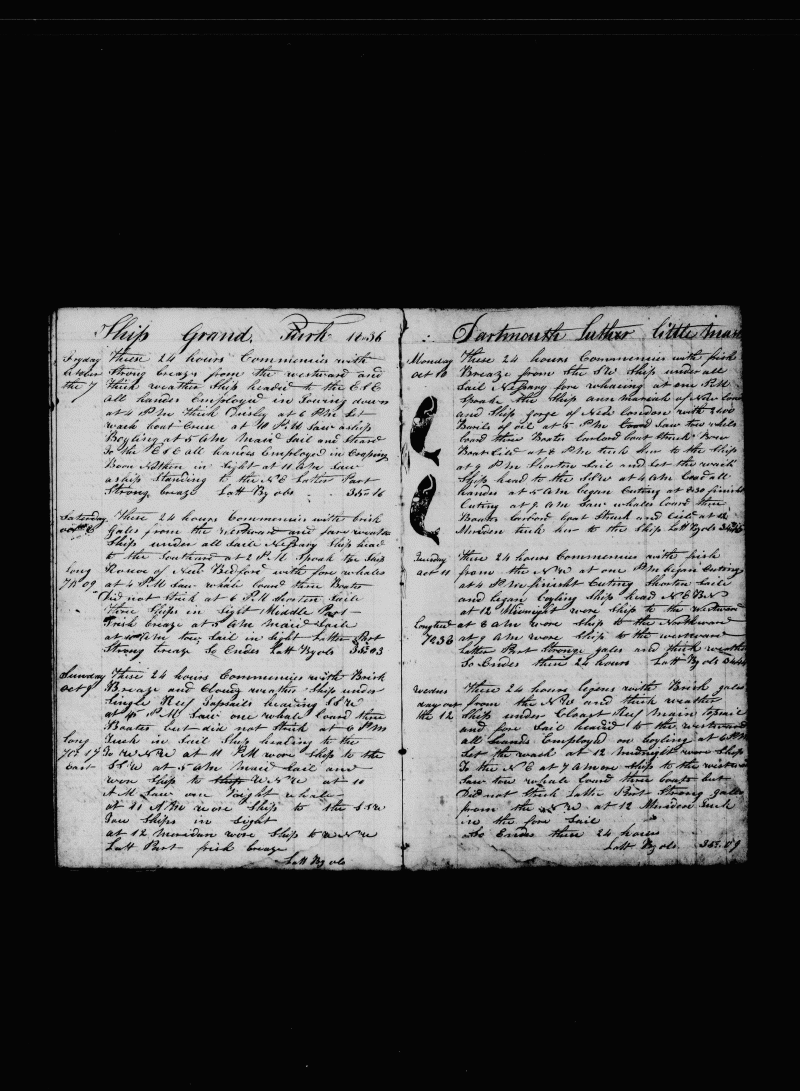 Ship Grand Turk 1836
Fryday These 24 hours Commencies with
October Strong breaze from the westward and
the 7 thick weather Ship headed to the ESE
all handes Employed in Towing down
at 4 P M thick Drisly at 6 P M Set
wach bout Cruse at 10 P M Saw a ship
Boyling at 5 A M maid Sail and Steard
To the ESE all handes Employed in Coopering
Noon Nothen in Sight at 11 A M Saw
a ship Standing to the NE Latter Part
Strong breaze Latt By obs 35=16
Saturday These 24 hours Commencies with brisk
oct 8 Gales from the westward and fare weather
Ships under all Saile Nessary Ship head
to the Southard at 2 P M Spoak the Ship
Long of New Bedford with fore whales
70 09 at 4 P M Saw whale Loward three Boates
Did not Strik at 6 P M Shorten Saile
three Ships in Sight Middle Part
Brisk breaze at 5 A M maid Saile
at 10 A M tree Sail in Sight Latter Part
Strong breaze So Endes Latt By obs 35=03
Sunday These 24 hours Commencies with Brisk
oct 9 Breaze and Cloudy weather Ship under
Single Reef Topsails heading SSW
at P M Saw one whale Loward three
Boates but did not Strik at 6 P M
Long Tuck in Sail Ship heading to the
70=17 To WNW at 11 P M wore Ship to the
East SSW at 5 A M maid Sail and
wore Ship to WNW at 10
A M Saw one Right whale
at 11 A M wore Ship to the SSW
Four Ships in Sight
at 12 Meridian wore Ship to WNW
Latt Part frisk breaze
Latt By obs
Dartmouth luther little Mas
Monday These 24 hours Commencies with frisk
oct 10 Breaze from the SW Ship under all
Sail Nessary fore whaeing at one P M
Spoake the Ship ann mariah of New Lond
and Ship gorge of New London with 2400
Barils of oil at 5 P M Saw two whals
Loard three Boates Larbord boat Struck Bow
Boat kild at 8 P M tuck her to the Ship
at 9 P M Shorten Sail and Set the wach
Ships head to the SSW at 4 A M Caad all
handes at 5 A M began Cuting at 8=30 finisht
Cuting at 9 A M Saw whales Loard three
Boates Larbord boat Struck and kild at 12
Meriden tuck her to the Ship Latt By obs
Tuesday These 24 hours Commencies with frisk
oct 11 from the NW at one P M began Cuting
at 4 P M finisht Cuting Shorten Saile
and began boyling Ship head NEBN
at 12 Midnight wore Ship to the westward
Longtud at 8 A M wore Ship to the Northward
72 36 at 9 A M wore Ship to the westward
Latter Part Stronge gales and thick weather
So Endes these 24 hours Latt By obs
Wednes These 24 hours begens withe Brisk gales
day oct from the NW and thick weather
the 12 Ships under Cloast Reef Main Topsail
and fore Sail headed to the westward
all handes Employed on boyling at 6 P M
Set the wach at 12 Midnight wore Ship
To the NE at 7 A M wore Ship to the westward
Saw two whale Loard three boats but
Did not Struck Latter Part Strong gales
from the NW at 12 Meriden Tuck
in the fore Sail
So Endes these 24 hours
Latt By obs 35=09